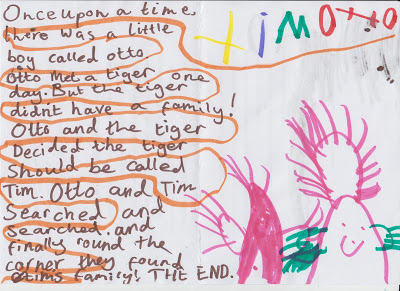 Once upon a time,
there was a little
boy called otto.
Otto met a tiger one
day. But the tiger
didn't have a family!
Otto and the tiger
Decided the tiger
should be called
Tim. Otto and Tim
Searched and
Searched. and
finally round the
corner they found
tims family! THE END.
tim Otto